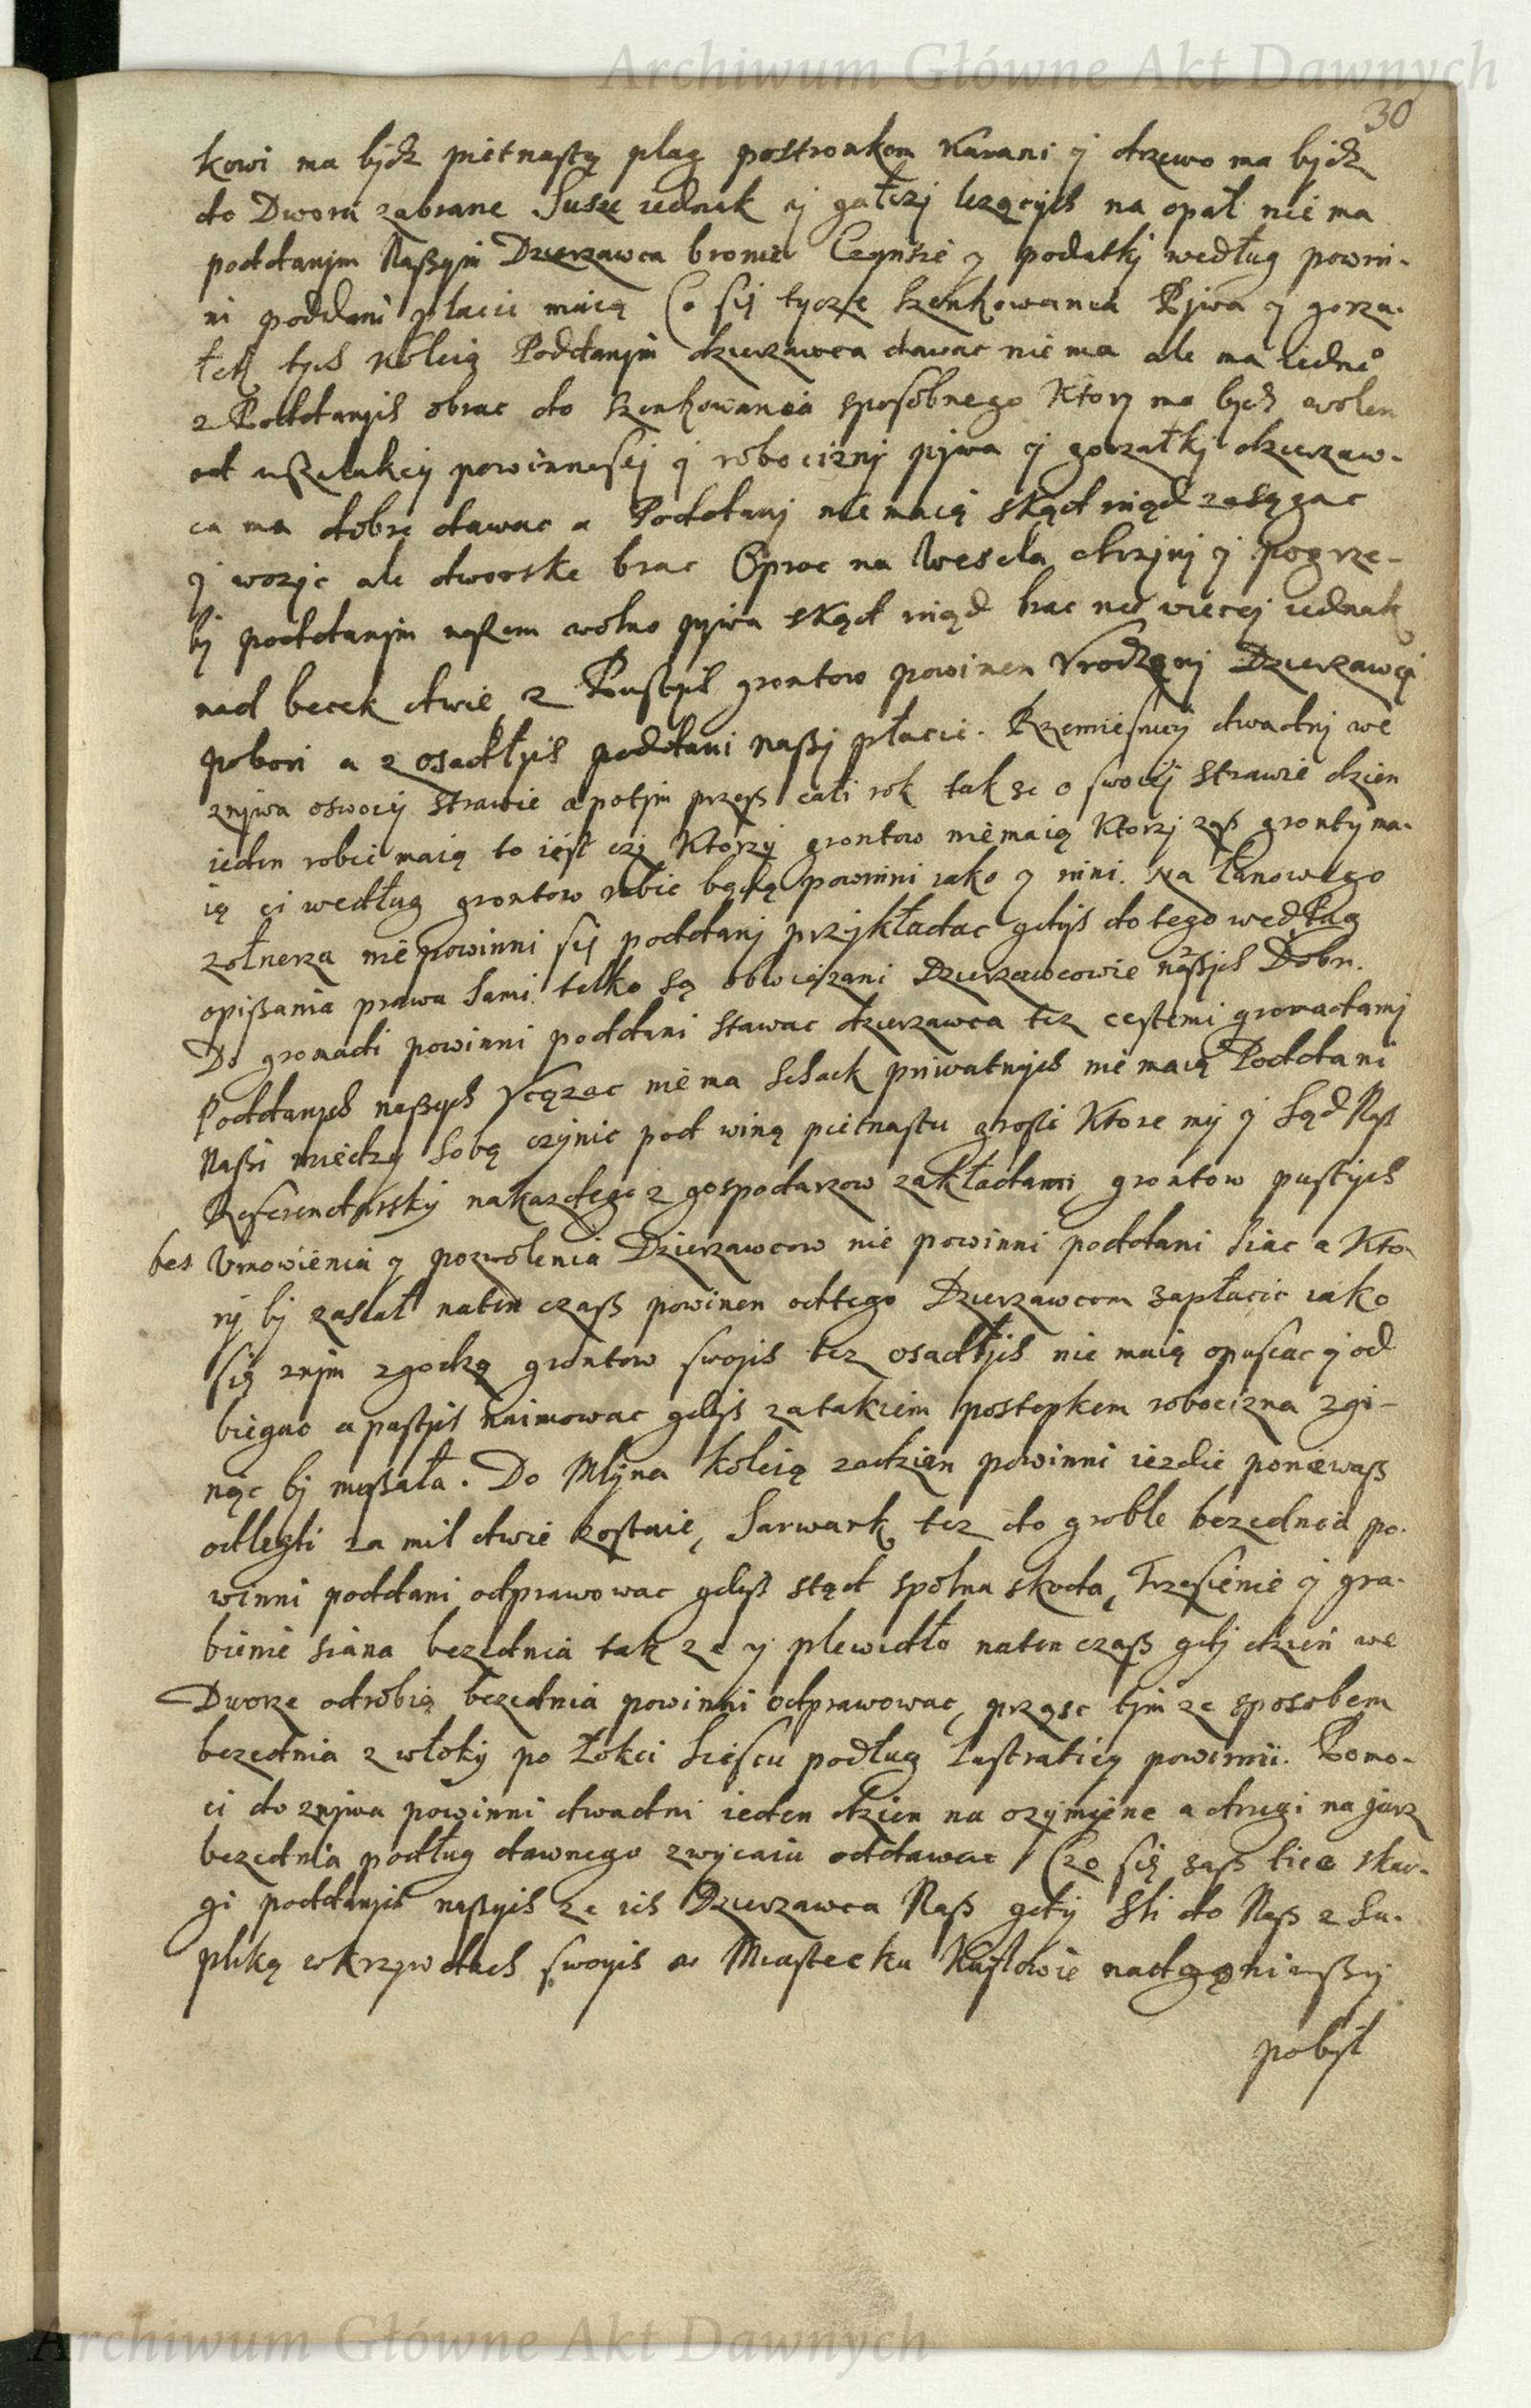 Archiwum Główne Akt Dawnych
30
kowi ma bydz pietnastą plag postronkem karani y drzewo ma bydz
do Dworu zabrane Susze iednak y gałezi lezących na opał nie ma
poddanym Naßym Dzierzawca bronic Czynsze y podatki według powin-
ni poddani płacic maią Co się tycze szenkowania Piwa y gorza-
łek tych koleią Poddanym dzierzawca dawac nie ma ale ma iedne°
z Poddanych obrac do szenkowania sposobnego Ktory ma bydz wolen
od wßelakiey powinnosci y robocizny piwa y gorzałki dzierzaw-
ca ma dobre dawac a Poddani nie maią skąd inąd zasięgac
y wozyc ale dworske brac Oproc na Wesela chrziny y pogrze-
by poddanym naßem wolno piwa skąd inąd brac nie wiecej iednak
nad becek dwie z Pustych grontow powinen Vrodzony Dzierzawca
pobori a z osiadłych poddani naßy płacic. Rzemiesnicy dwa dny we
znywa o swoiey strawie a potym przeß cali rok tak ze o swoiey strawie dzien
ieden robic maią to iest czy Ktorzy grontow nie maią Ktorzy zaß gronty ma-
ią ci według grontow robic będą powinni iako y inni. Na łanowego
zołnerza nie powinni się poddani przykładac gdyż do tego według
opißania prawa sami telko są obwiązani Dzierzawcowie naßych Dobr.
Do gromadi powinni poddani stawac dzierzawca tez cestemi gromadami
Poddanych naßych Vcęzac nie ma schack priwatnych nie maią Poddani
Naßi między sobą czynic pod winą pietnastu grosi Ktore my y Sąd Naß
Referendarsky na kazdego z gospodarzow zakładami, grontow pustych
bes Vmowienia y pozwolenia Dzierzawcow nie powinni poddani siac a Kto-
ry by zasiał naten czaß powinen od tego Dzierzawcom zapłacic iako
się znym zgodzą grontow swoych tez osiadłych nie maią opuscac y od
biegac a pustych naimowac gdyß za takiem postepkem robocizna zgi-
nąc by mußała. Do Młyna koleią za dzien powinni iezdic poniewaß
odlegli za mil dwie zostaie, Sarwark tez do groble bezednia po-
winni poddani odprawowac gdyß stąd spolna skoda, Trzesienie y gra-
bienie siana bezednia tak ze y plewidło naten czaß gdy dzien we
Dworze odrobią bezednia powinni odprawowac, prząsc tym ze sposobem
bezednia z włoky po łokci sciescu podług Lustraticy powinni. Pomo-
ci do znywa powinni dwa dni ieden dzien na ozymiene a drugi na jarz
bezednia podług dawnego zwyczaiu oddawac Czo się zaß tice skar-
gi poddanych naßych ze ich Dzierzawca Naß gdy sli do Naß z Su-
pliką w krzywdach swoych w Miastecku Kuflowie nadgoniwßy
pobył
Archiwum Główne Akt Dawnych